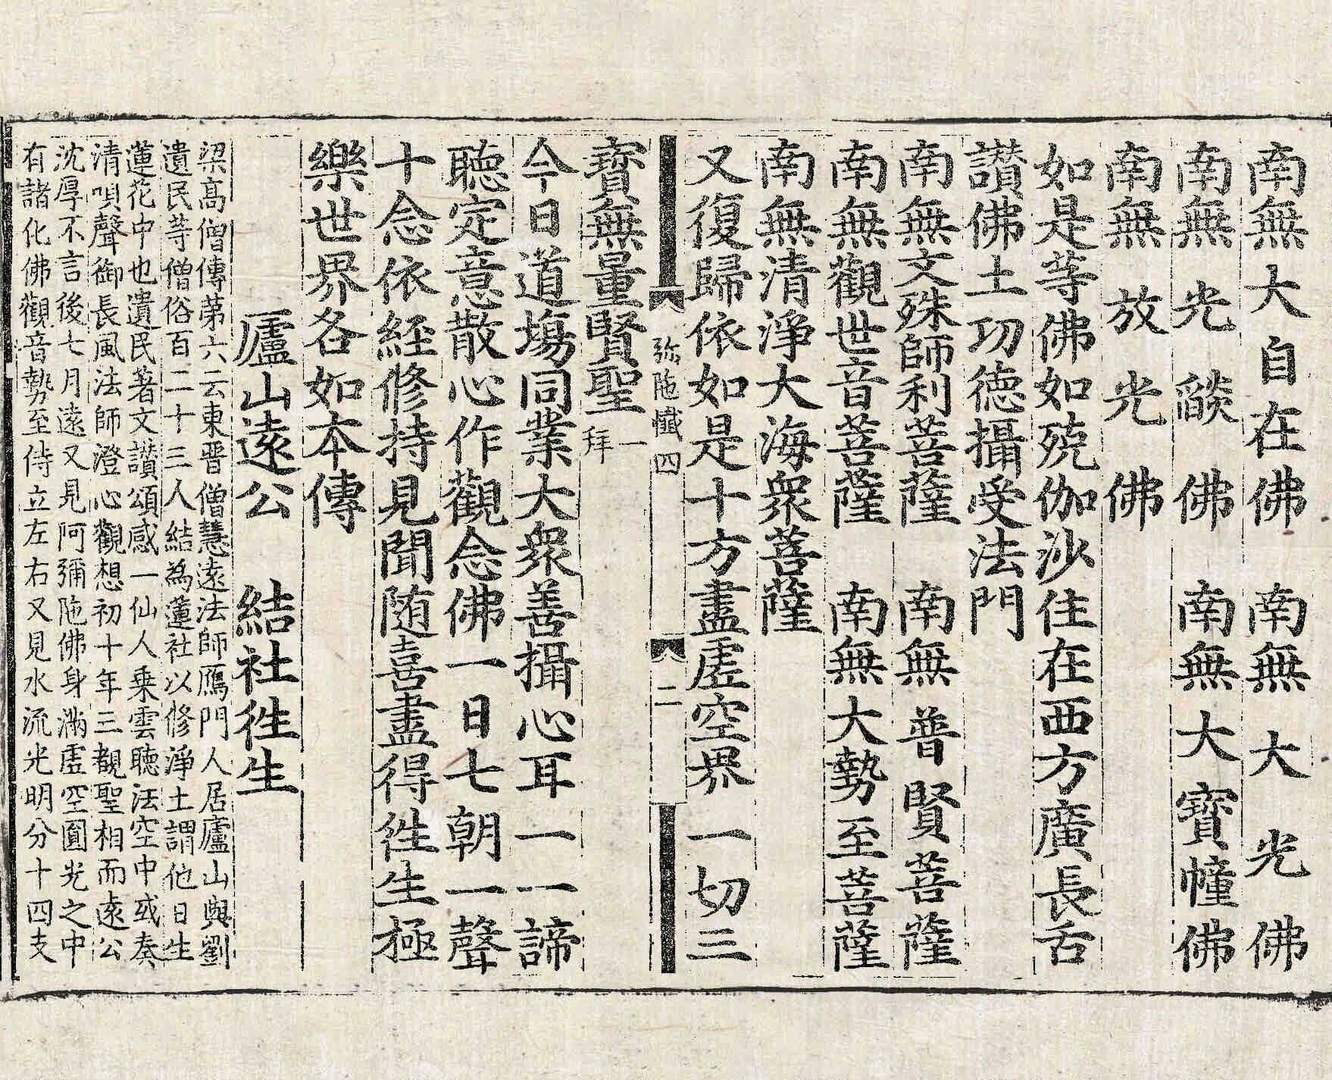 南無大自在佛　南無大光佛
南無光燄佛　南無大寶幢佛
南無放光佛
如是等佛如殑伽沙住在西方廣長舌
讃佛土功德攝受法門
南無文殊師利菩薩　南無普賢菩薩
南無觀世音菩薩　南無大勢至菩薩
南無清淨大海衆菩薩
又復歸依如是十方盡虛空界一切三
弥陁懺四　二
寳無量賢聖一拜
今日道塲同業大衆善攝心耳一一諦
聽定意散心作觀念佛一日七朝一聲
十念依經修持見聞随喜盡得徃生極
樂世界各如本傳
廬山遠公　結社徃生
梁高僧傳苐六云東晋僧慧遠法師鴈門人居廬山與劉
遺民䒭僧俗百二十三人結為蓮社以修淨土謂他日生
蓮花中也遺民著文讃頌感一仙人乗雲聽法空中或奏
清唄聲御長風法師澄心觀想初十年三覩聖相而遠公
沈厚不言後七月遠又見阿彌陁佛身滿虛空圎光之中
有諸化佛觀音勢至侍立左右又見水流光明分十四支